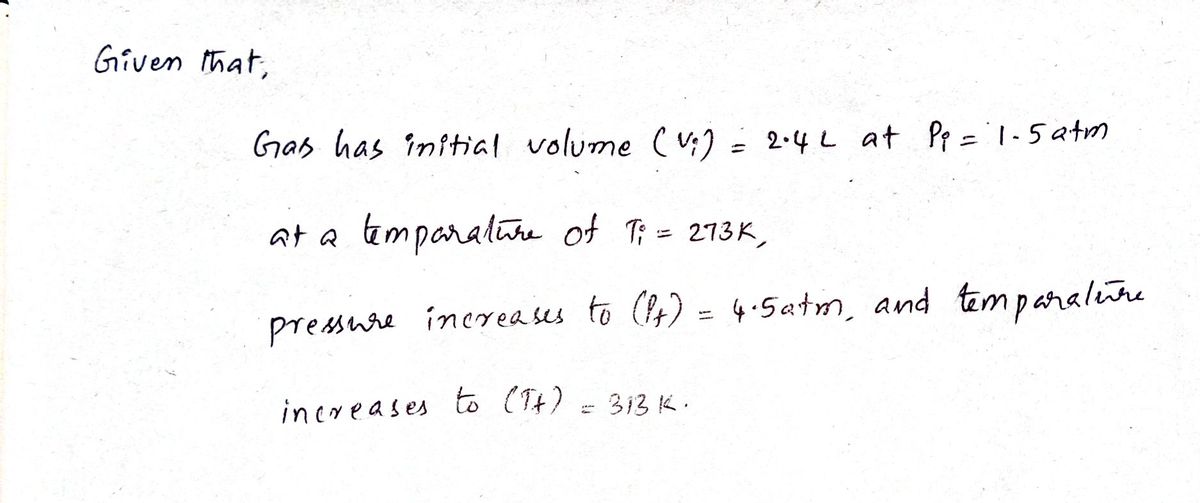 Given that,
Gas has initial volume (Vi) = 2.4 L at Pi = 1.5 atm
at a temparature of Ti = 273K,
pressure increases to (Pf) = 4.5atm, and temparature
increases to (Tf) = 313 K.